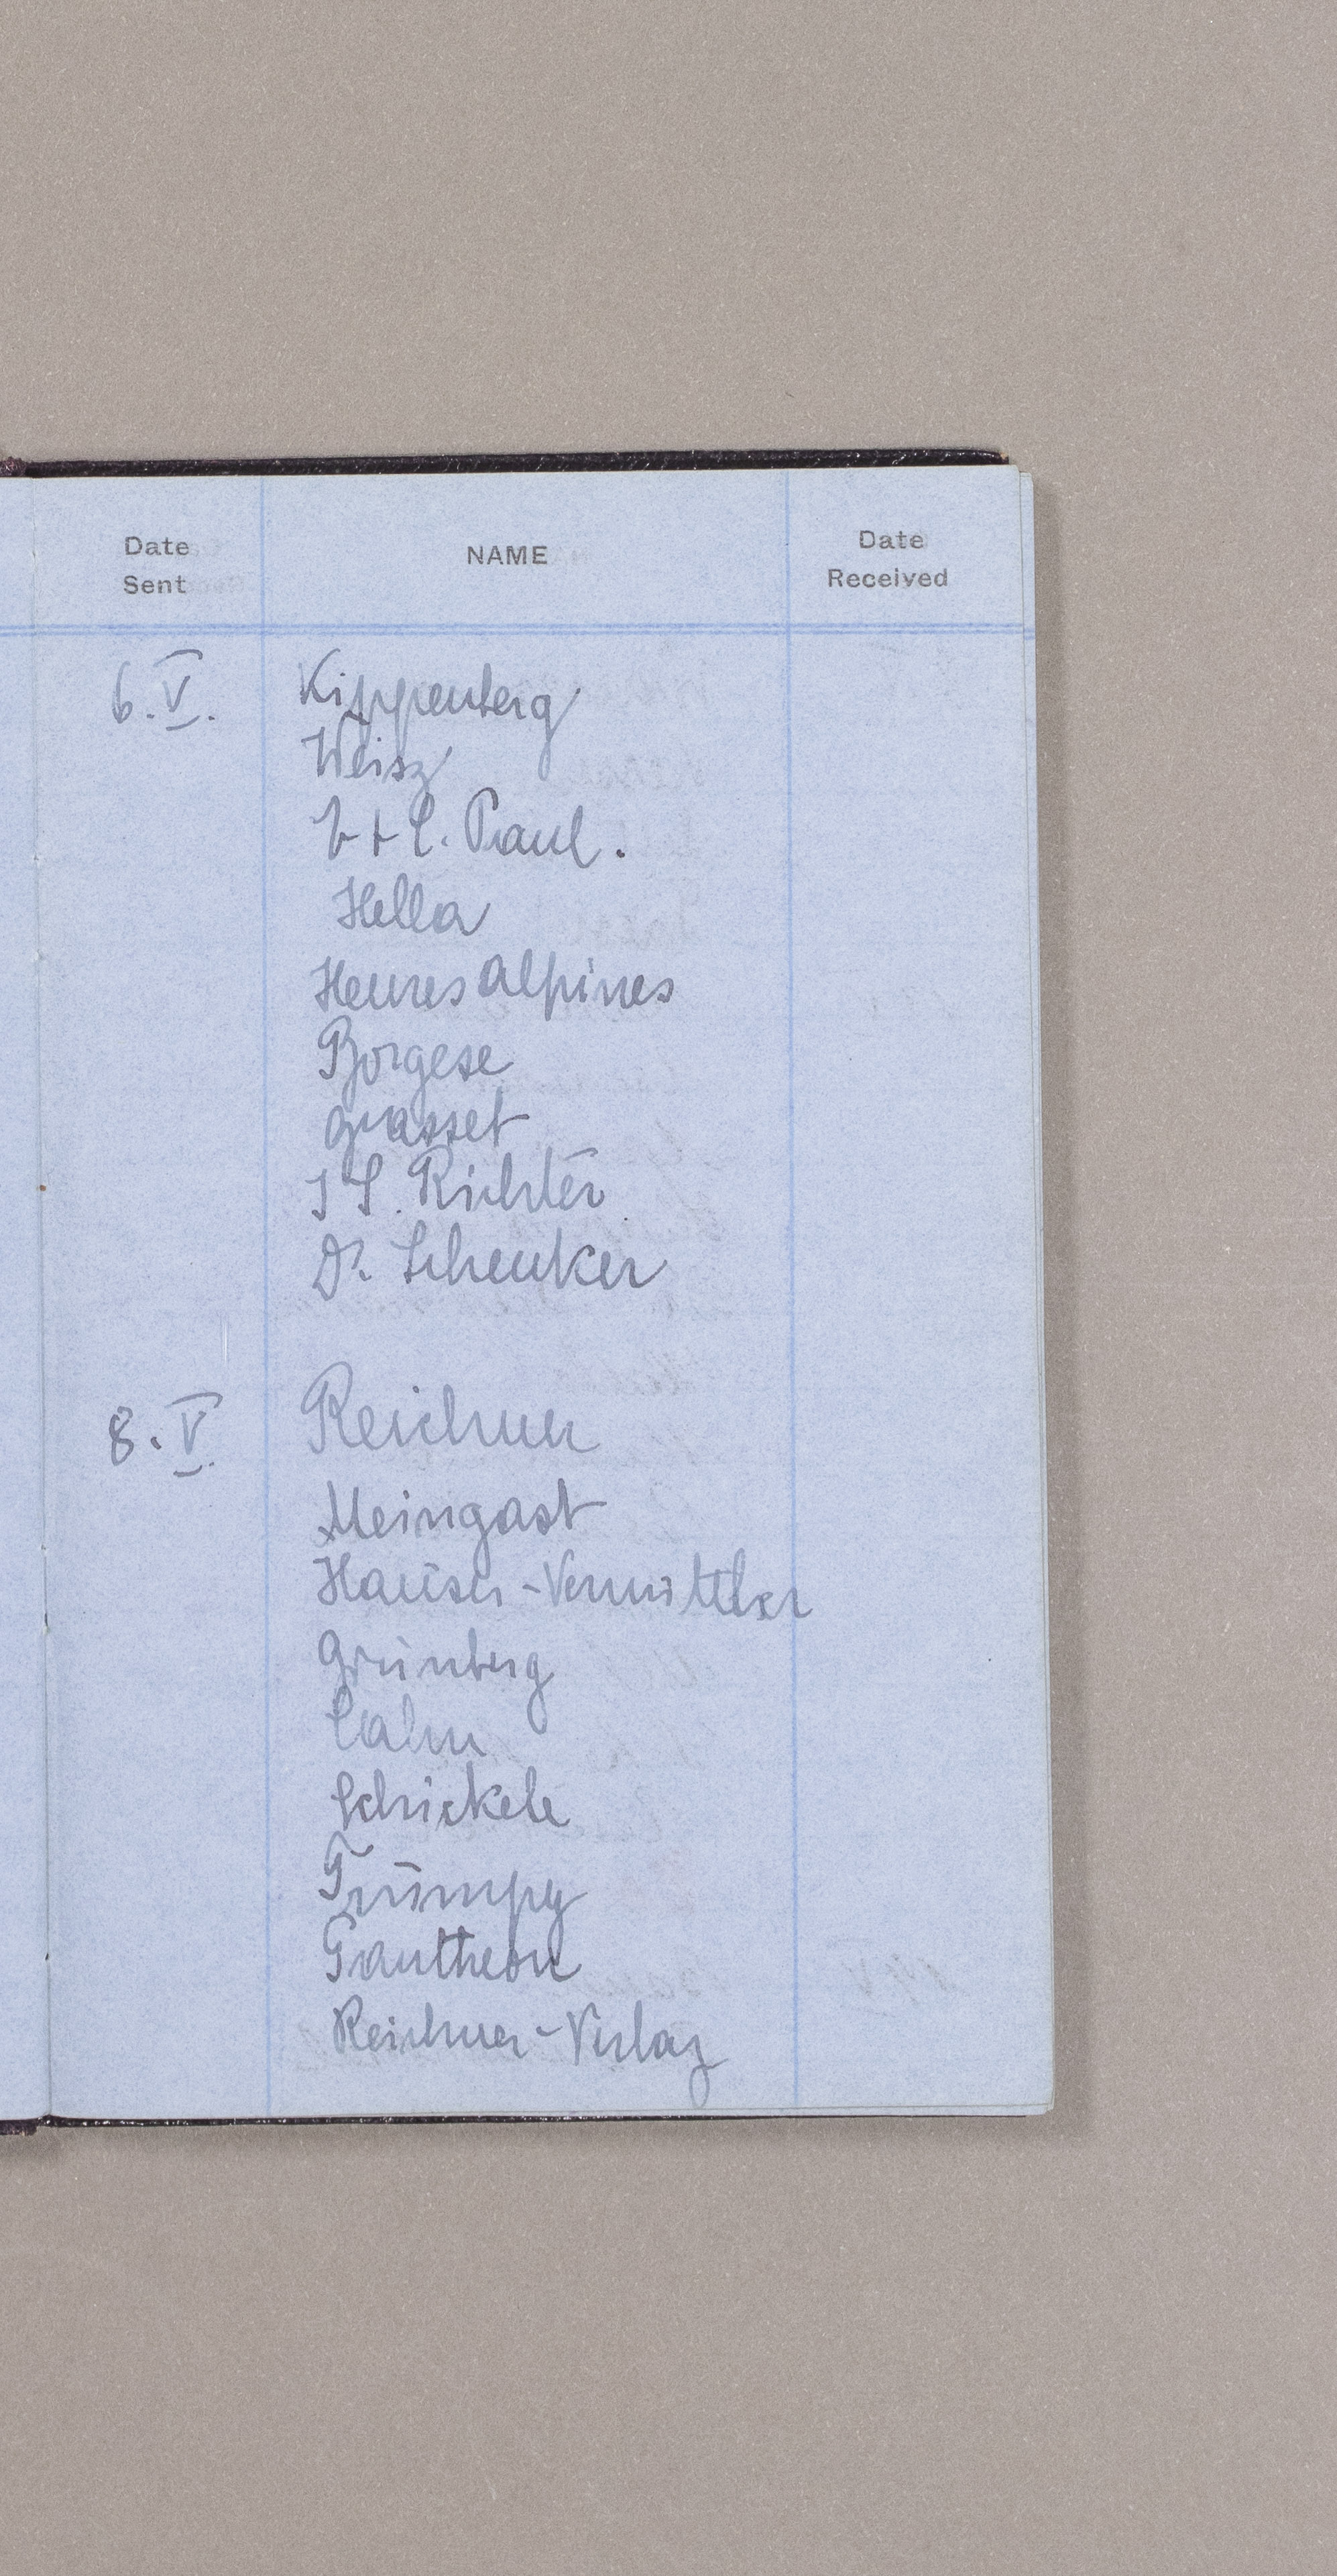 Date Sent NAME Date Received
6.V. Kippenberg
Weisz
E. Paul.
Hella
Heures Alpines
Borgese
Grasset
Richter
Dr. Schenker
8.V. Reichner
Meingast
Hauser-Vermittler
Grünberg
Cahn
Schickele
Trümpy
Pantheon
Reichner-Verlag